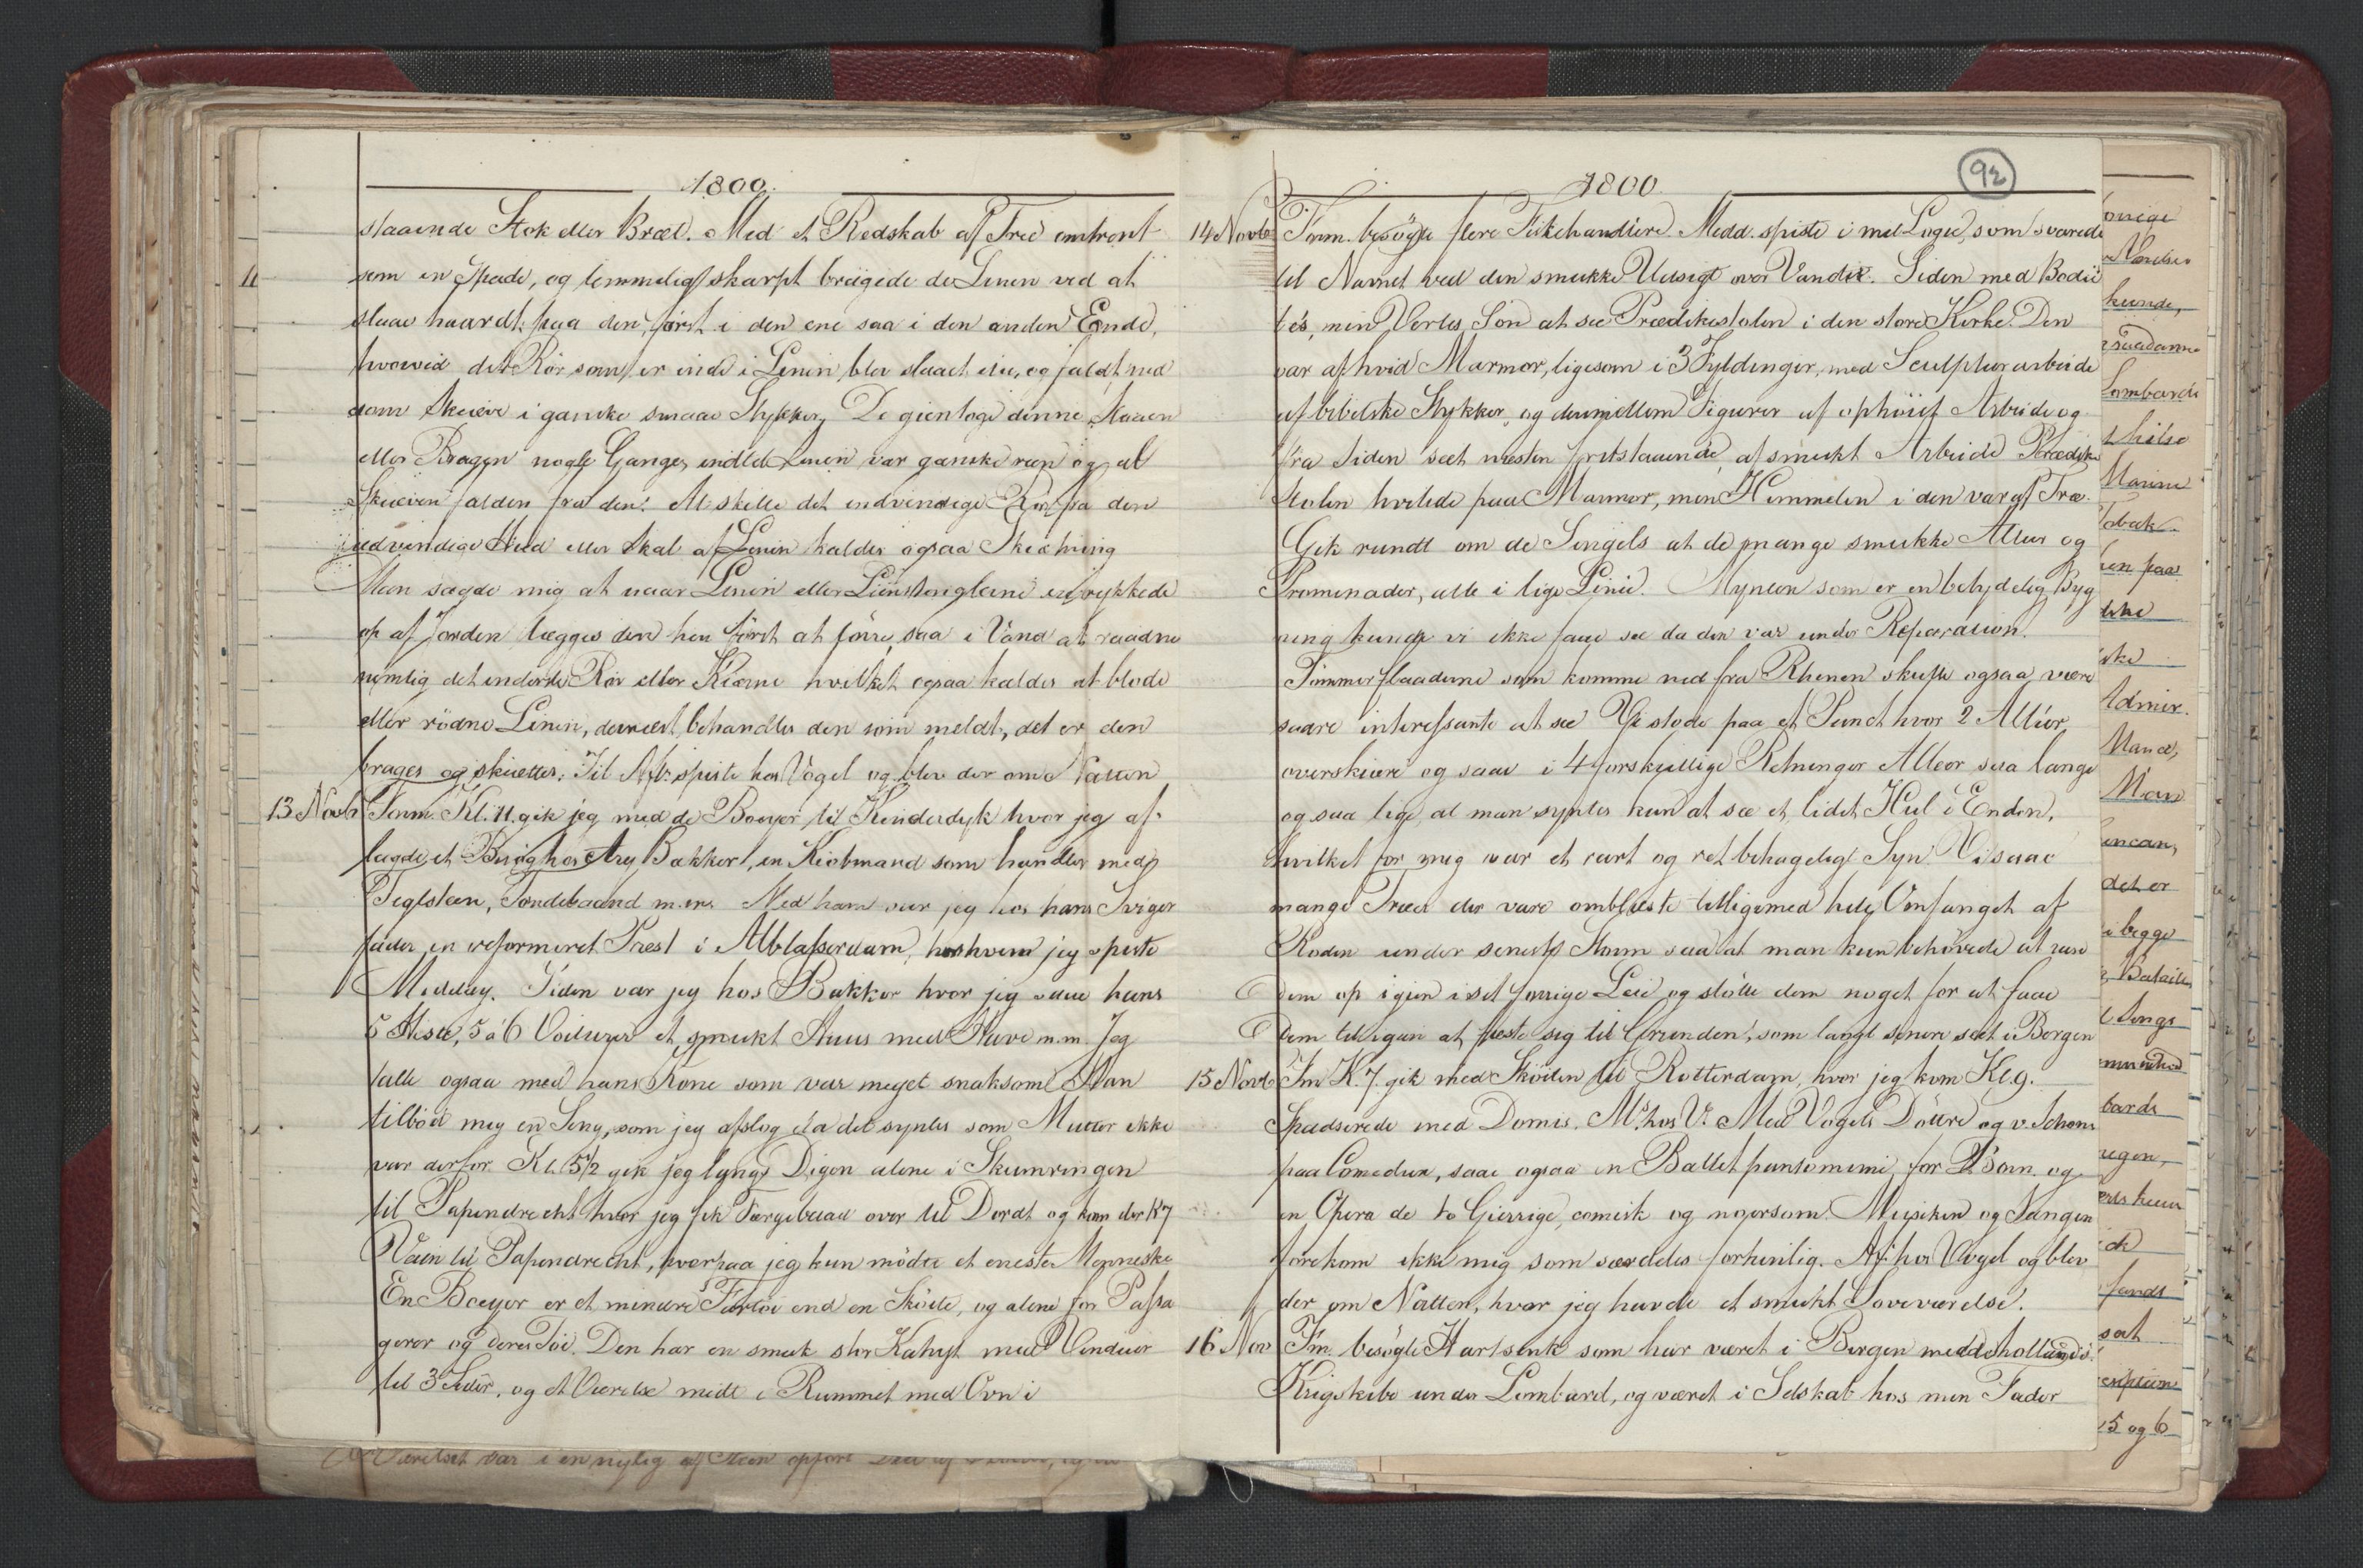 1800.
staaende Stok eller Bræt. Med et Redskab af Træ omtrent
som en Spade, og temmelig skarpt brægede de Linen ved at
slaae haardt paa den, først i den ene saa i den anden Ende,
hvorved det Rör som er inde i Linen blev slaaet itu, og faldt ned
som Skiæve i ganske smaae Stykker, De gientoge denne Slaaen
eller Bragen nogle Gange, indtil Linen var ganske reen og al
Skiæven falden fra den. At skille det indvendige Rör fra den
udvendige Hud eller Skal af Linen kaldes ogsaa Skiæthning
Man sagde mig at naar Linen eller Liinstenglerne ere rykkede
op af Jorden lægges den hen först at törre, saa i Vand at raadne
nemlig det inderste Rör eller Kiærne hvilket ogsaa kaldes at blöde
eller rödne Linen, dernæst behandles den som meldt, det er den
brages og skiættes. Til Aft. spiste hos Vogel og blev der om Natten
13 Novb Form. Kl. 11. gik jeg med de Boeyer til Kinderdyk hvor jeg af-
lagde et Besög hos Ary Bakker, en Kiöbmand som handler med
Teglsteen, Töndebaand m.m. Med ham var jeg hos hans Sviger
fader, en reformeret Præst i Alblasserdam, hos hvem jeg spiste
Middag. Siden var jeg hos Bakker hvor jeg saae hans
5 Heste, 5 á 6 Voiturer et smukt Huus med Have m.m. Jeg
talte ogsaa med hans Kone som var meget snaksom Han
tilböd mig en Seng, som jeg afslog da det syntes som Mutter ikke
var derfor. Kl. 5 1/2 gik jeg langs Digen alene i Skumringen
til Papendrecht hvor jeg fik Færgebaad over til Dordt og kom der K 7
Veien til Papendrecht, hvorpaa jeg kun mödte et eneste Menneske
En Boeyer er et mindre Fartöi end en Sköite, og alene for Passa
gerer og deres Töi. Den har en smuk stor Kahyt med Vinduer
til 3 Sider, og et Værelse midt i Rummet med Ovn i
1800
92
14 Novb Form. besögte flere Fiskehandlere. Midd. spiste i mit Logie, som svarede
til Navnet ved den smukke Udsigt over Vandet. Siden med Bodü
tés, min Vertes Sön at see Prædikestolen i den store Kirke. Den
var af hvid Marmor, ligesom i 3 Fyldinger, med Sculpturarbeide
af bibelske Stykker, og derimellem Figurer af ophöiet Arbeide og
fra Siden seet næsten fritstaaende, af smukt Arbeide Prædike
stolen hvilede paa Marmor, men Himmelen i den var af Træ.
Gik rundt om de Singels at de mange smukke Alleer og
Promenader, alle i lige Linie. Mynten som er en betydelig Byg
ning kunde vi ikke faae see da den var under Reparation.
Tömmerflaaderne som komme ned fra Rhinen skulle ogsaa være
saare interessante at see Vi stode paa et Punct hvor 2 Alleer
overskiære og saae i 4 forskiellige Retninger Alleer saa lange
og saa lige, at man syntes kun at see et lidet Hul i Enden,
hvilket for mig var et rart og ret behageligt Syn. Vi saae
mange Træer der vare omblæste tilligemed hele Omfanget af
Roden under seneste Storm saa at man kun behövede at reise
dem op igien i det forrige Leie og stötte dem noget for at faae
dem til igien at fæste sig til Grunden, som langt senere seet i Bergen
15 Novb Fm K. 7. gik med Sköiten til Rotterdam, hvor jeg kom Kl. 9.
Spadserede med Domis. M. hos V. Med Vogels Döttre og v. Schons
paa Comedien, saae ogsaa en Ballet pantomimi, for Börn og
en Opera de to Gierrige, comisk og moersom. Musiken og Sangen
forekom ikke mig som særdeles fortrinlig. Aft. hos Vogel og blev
der om Natten, hvor jeg havde et smukt Soveværelse.
16 Nov Fm. besögte Hartsink som har været i Bergen med de hollandske
Krigskibe under Lombard, og været i Selskab hos min Fader